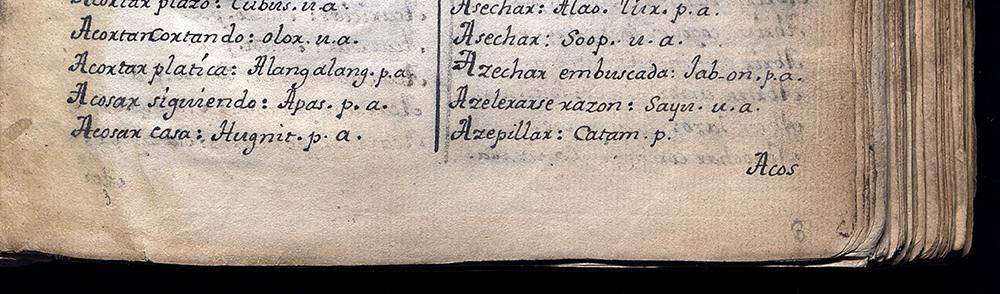 Acortar plazo: Cubus. u. a.
AcortanCortando: olor. u. a.
Acortar platíca: Alang alang. p. a.
Acosar siguiendo: Apas. p. a.
Acosar casa: Hugnit. p. a.
Asechar: Alao. lur. p. a.
Asechar: Soop. u. a.
Azechar embuscada: Jab-on. p. a.
Azelerarse razon: Sayu. u. a.
Azepillar: Catam. p.
Acos
3